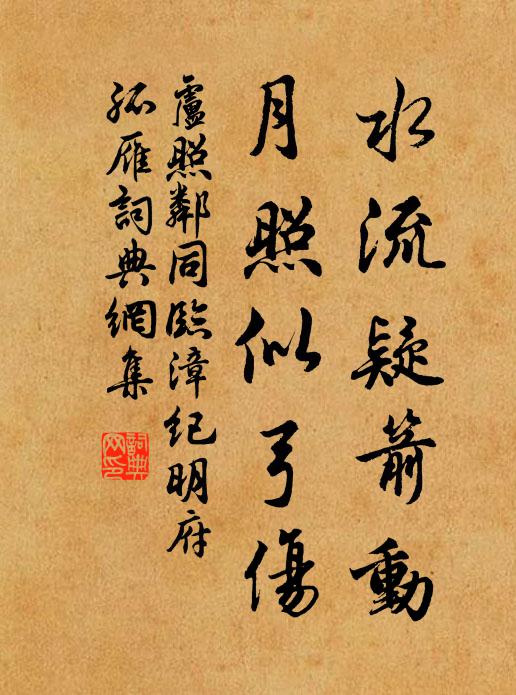 水流疑箭動
月照似弓傷
盧照鄰同臨漳紀明府
孤雁詞典網集
詞典網印